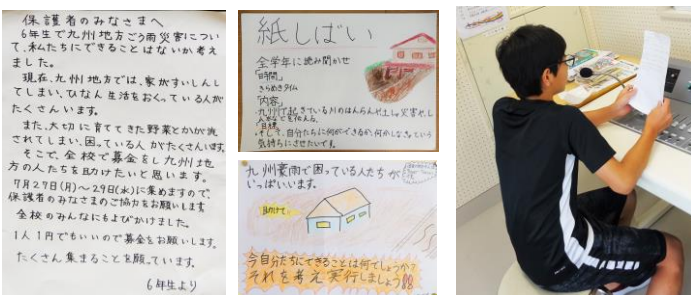 保護者のみなさまへ
6年生で九州地方ごう雨災害につい
て、私たちにできることはないか考え
ました。
現在、九州地方では、家がすいしんし
てしまい、ひなん生活をおくっている人が
たくさんいます。
また、大切に育ててきた野菜とかが流
されてしまい、困っている人がたくさんいます。
そこで、全校で募金をし九州地
方の人たちを助けたいと思います。
7月27日(月)～29日(水)に集めますので、
保護者のみなさまのご協力をお願いします
全校のみんなにもよびかけました。
1人1円でもいいので募金をお願いします。
たくさん集まることを願っています。
6年生より
紙しばい
全学年に読み聞かせ
「時間」
きらめきタイム
「内容」
九州で起きている川のはんらんや土しゃ災害や、し
「目標」
そして、自分たちに何ができるか、何かしなきゃという
気持ちにさせたいです。
九州豪雨で困っている人たちが
いっぱいいます。
助けて
今自分たちにできることは何でしょうか?
それを考え実行しましょう!!